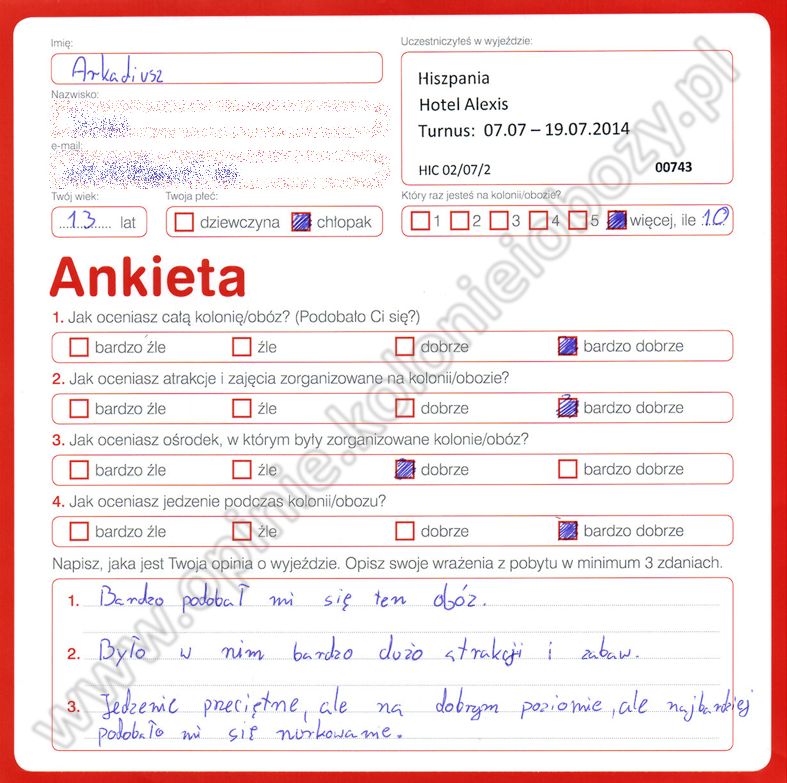 Imię:
Arkadiusz
Uczestniczyłeś w wyjeździe:
Hiszpania
Hotel Alexis
Turnus: 07.07 – 19.07.2014
HIC 02/07/2 00743
Nazwisko:
e-mail:
Twój wiek:
13 lat
Twoja płeć:
dziewczyna chłopak
Który raz jesteś na kolonii/obozie?
1 2 3 4 5 więcej, ile 10
Ankieta
1. Jak oceniasz całą kolonię/obóz? (Podobało Ci się?)
bardzo źle źle dobrze bardzo dobrze
2. Jak oceniasz atrakcje i zajęcia zorganizowane na kolonii/obozie?
bardzo źle źle dobrze bardzo dobrze
3. Jak oceniasz ośrodek, w którym były zorganizowane kolonie/obóz?
bardzo źle źle dobrze bardzo dobrze
4. Jak oceniasz jedzenie podczas kolonii/obozu?
bardzo źle źle dobrze bardzo dobrze
Napisz, jaka jest Twoja opinia o wyjeździe. Opisz swoje wrażenia z pobytu w minimum 3 zdaniach.
1. Bardzo podobał mi się ten obóz.
2. Było w nim bardzo dużo atrakcji i zabaw.
3. Jedzenie przeciętne, ale na dobrym poziomie, ale najbardziej
podobało mi się nurkowanie.
www.opinie.kolonieiobozy.pl